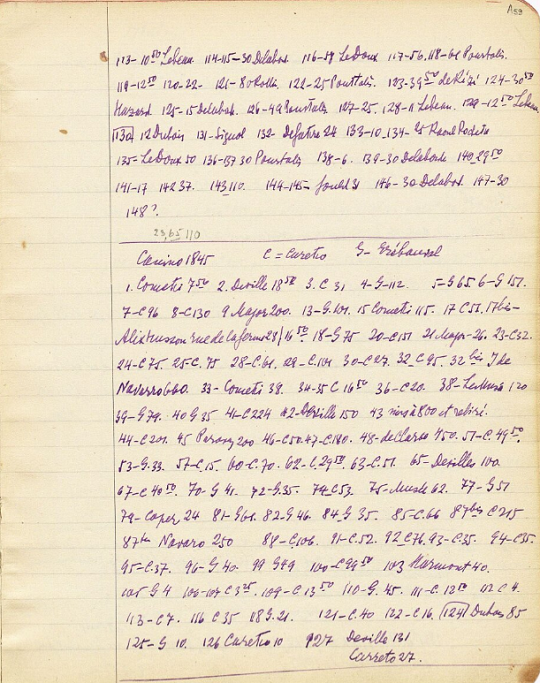 A59
113-10⁵⁰ Lebeau 114-115-30 Delabord 116-59 LeDoux 117-56. 118-61 Pourtalès.
119-12⁵⁰ 120-22- 121-80 Rolli. 122-25 Pourtalès. 123-39⁵⁰ 124-30⁵⁰
Hazard 125-15 Delabord. 126-49 Pourtalès 127-25. 128-11 Lebeau. 129-12⁵⁰ Lebeau
130 12 Dubois 131-Signol 132- 24 133-10.134-25 Raoul Rochette
135-LeDoux 20 136-137 30 Pourtalès 138-6. 139-30 Delaborde 140 29⁵⁰
141-17 142 37. 143 110. 144-145- Fould 31 146-30 Delabord 147-30
148?.
23,65 110
Canino 1845 C = Curetio G-
1. Cometi 7⁵⁰ 2. Deville 18⁵⁰ 3. C 31 4-G-112. 5-G 65 6-G 151.
7-C 96 8-C 130 9 Major 200. 13-G.101. 15 Cometi 115. 17 C 51. 17 bis-
28/16⁵⁰ 18-G 75 20-C 151 21 Major-26. 23-C 32.
24-C 75. 25-C. 75 28-C 61. 29-C.101 30-C 27. 32 C 95. 32 bis J de
Navarro 660. 33- Cometi 38. 34-35 C 16⁵⁰ 36-C 20. 38- 120
39-G 79. 40 G 35 41-C 224 42-Deville 150 43 mis à 800 et retiré.
44-C 201. 45 200 46-C 50. 47-C 180. 48-de Clercq 450. 51-C. 49⁵⁰.
53-G.33. 57-C 15. 60-C.70. 62-C.29⁵⁰. 63-C.51. 65-Devilles 100.
67-C 40⁵⁰. 70-G 41. 72-G.35. 74 C 53. 75- 62. 77-G 51
79-Caper 24 81-G 61. 82-G 46. 84-G 35. 85-C.66 87 bis C 215
87 ter Navaro 250 88-C 106. 91-C.52. 92 C 76 93-C 35. 94-C 35.
95-C 37. 96-G 40. 99 G 99 100-C 99⁵⁰ 103 Marmont 40.
105 G 4 106-107 C 3²⁵. 109-C 13⁵⁰ 110-G.45. 111-C.12⁵⁰ 112 C 4.
113-C 7. 116 C 35 118 G.21. 121-C.40 122-C 16. 124 Dubois 85
125-G 10. 126 Curetio 10 127 Deville 131
Carreto 27.